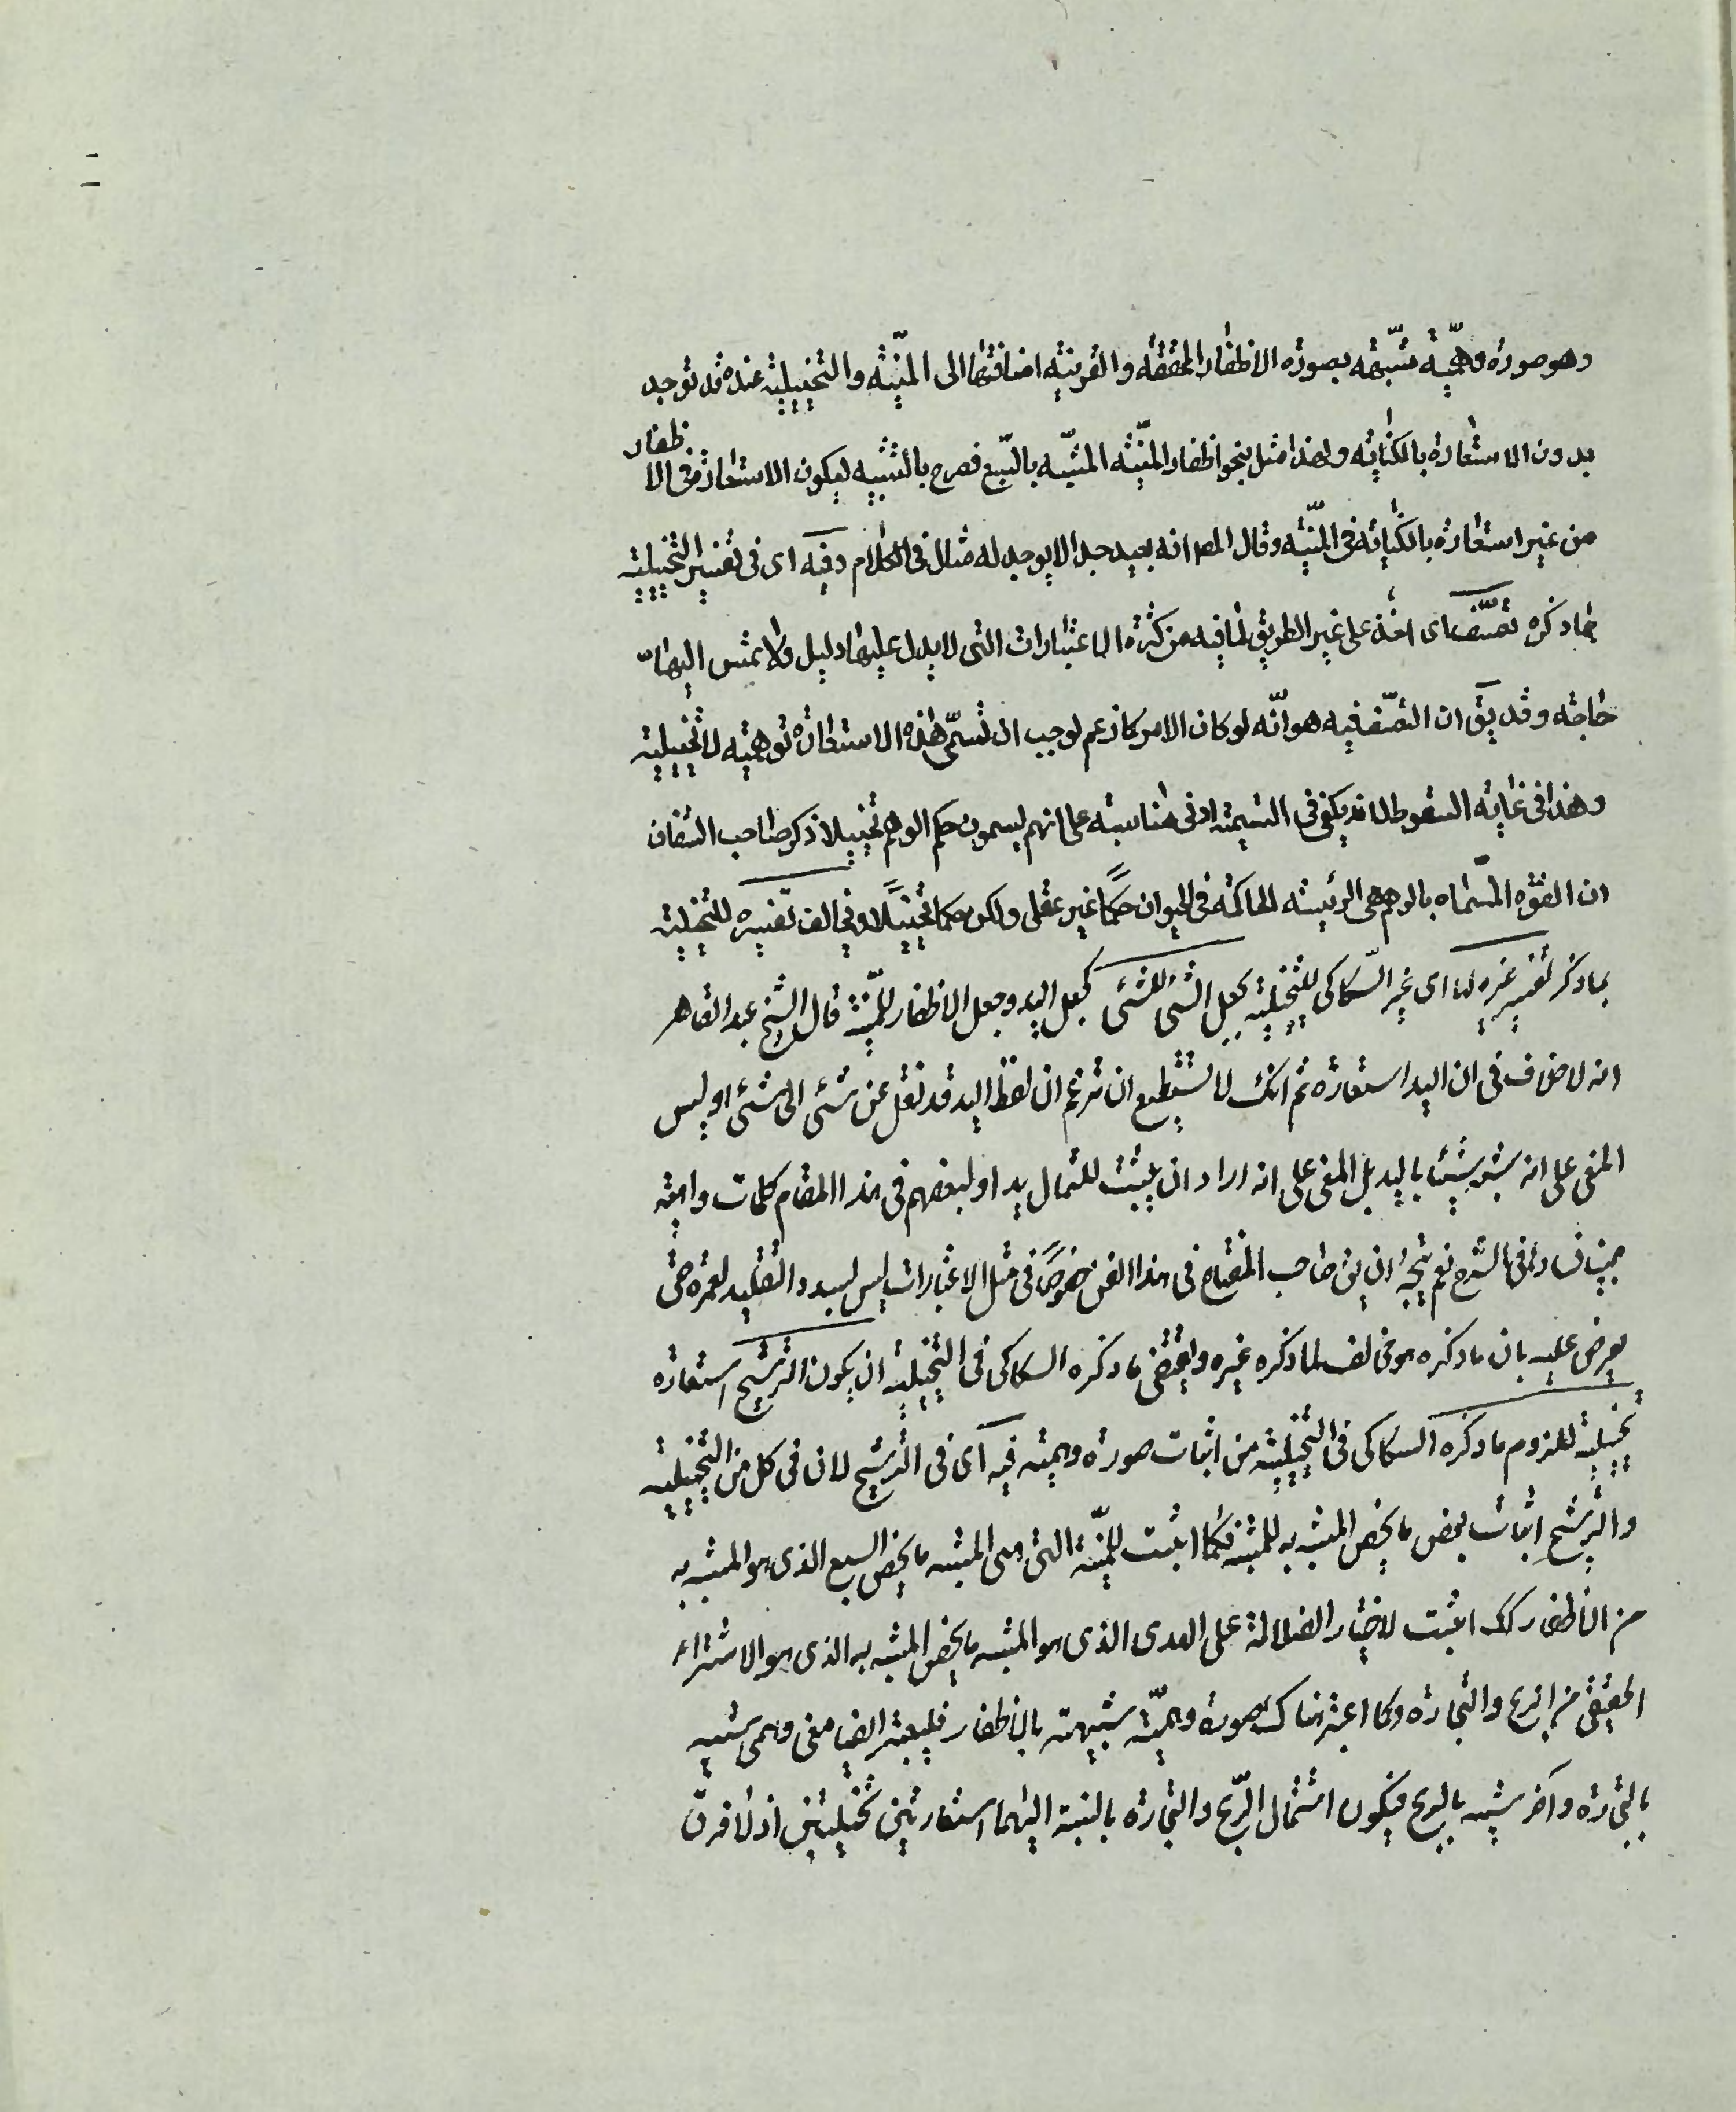 وهو صورة وهميّة شبّهة بصورة الاظفار المحققة والقرينة اضافتها الى المنيّة والتخييلية عنده قد توجد
بدون الاستعارة بالكناية ولهذا مثل بنحو اظفار المنيّة المشبّه بالسّبع فصرح بالتشبيه ليكون الاستعارة في الا ظفار
من غير استعارة بالكناية في المنيّة وقال المص انه بعيد جدا لا يوجد له مثال في الكلام وفيه اى في تفسير التخييلية
بما ذكره تعسّف اى اخذ على غير الطريق لما فيه من كثرة الاعتبارات التى لا يدل عليها دليل ولا تمس اليها
حاجة وقد يق ان التعسّف فيه هو انّه لو كان الامر كما زعم لوجب ان تسمّى هذه الاستعارة توهمية لا تخييلية
وهذا في غاية السقوط لانه يكفى في التسمية ادنى مناسبة على انهم يسمون حكم الوهم تخييلا ذكر صاحب الشفاء
ان القوّة المسّماة بالوهم هى الرئيسة الحاكمة في الحيوان حكمًا غير عقلى ولكن حكما تخييليّا ويخالف تفسيره للتخييلية
بما ذكر تفسير غيره لها اى غير السّكاكى للتخييلية بجعل الشئ للشئ كجعل اليد وجعل الاظفار للمنيّة قال الشيخ عبد القاهر
انه لا خلاف في ان اليد استعارة ثم انك لا تستطيع ان تزعم ان لفظ اليد قد نقل عن شئ الى شئ اذ ليس
المعنى على انه شبه شيئا باليد بل المعنى على انه اراد ان يثبت للشمال يدا ولبعضهم في هذا المقام كلمات واهية
بيّنا فسادها في الشرح نعم يتجه ان يق صاحب المفتاح في هذا الفن خصوصًا في مثل الاعتبارات ليس بصدد التقليد لغيره حتى
يعرض عليه بان ما ذكره هو مخالف لما ذكره غيره ويقتضى ما ذكره السكاكى في التخييلية ان يكون الترشيح استعارة
تخييلية للزوم ما ذكره السكاكى في التخييلية من اثبات صورة وهمية فيه اى في الترشيح لان في كل من التخييلية
والترشيح اثبات بعض ما يخص المشبه به للمشبه فكما اثبت للمنيّة التى هى المشبه ما يخص السبع الذى هو المشبه به
من الاظفار كك اثبت لاختيار الضلالة على الهدى الذى هو المشبه ما يخص المشبه به الذى هو الاشتراء
الحقيقى من الربح والتجارة وكما اعتبر هناك صورة وهميّة شبيهة بالاظفار فليعتبر ايضا معنى وهمى شبيه
بالتجارة وآخر شبيه بالربح فيكون استعمال الرّبح والتجارة بالنسبة اليهما استعارتين تخييليتين اذ لا فرق